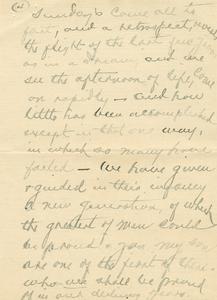 Sundays come all to
fast, and a retrospect, 
the flight of the last few years
as in a dream, and we
see the afternoon of life, come
on rapidly — and how
little has been accomplished
except in that one way,
in which so many have
failed — We have given
& guided in this infancy
a new generation, of which
the greatest of men could
be proud & you my son
are one of the first of them
who we shall be proud
of in our declining years.